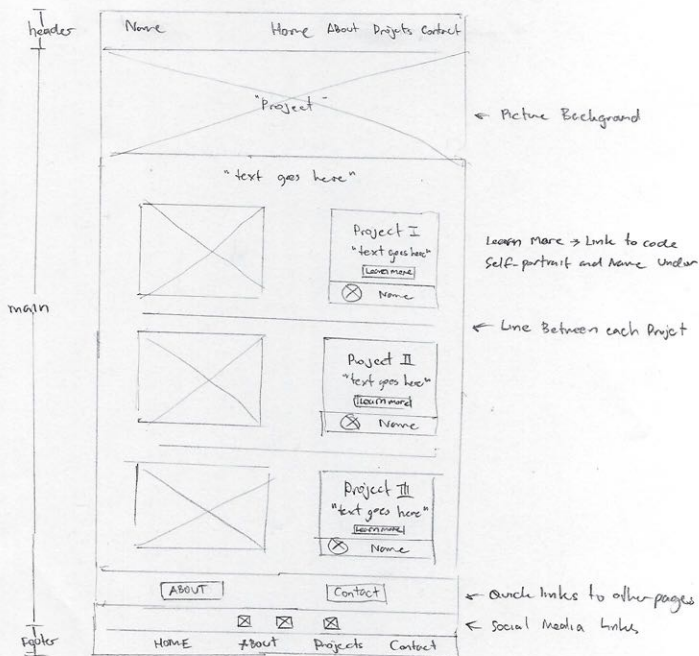 header
Name Home About Projects Contact
"Project"
← Picture Background
"text goes here"
Project I
"text goes here"
Learn More
Name
Learn More → Link to code
Self-portrait and Name Under
main
← Line Between each Project
Project II
"text goes here"
Learn more
Name
Project III
"text goes here"
Learn more
Name
ABOUT Contact
← Quick links to other pages
← Social Media links
Footer
HOME About Projects Contact